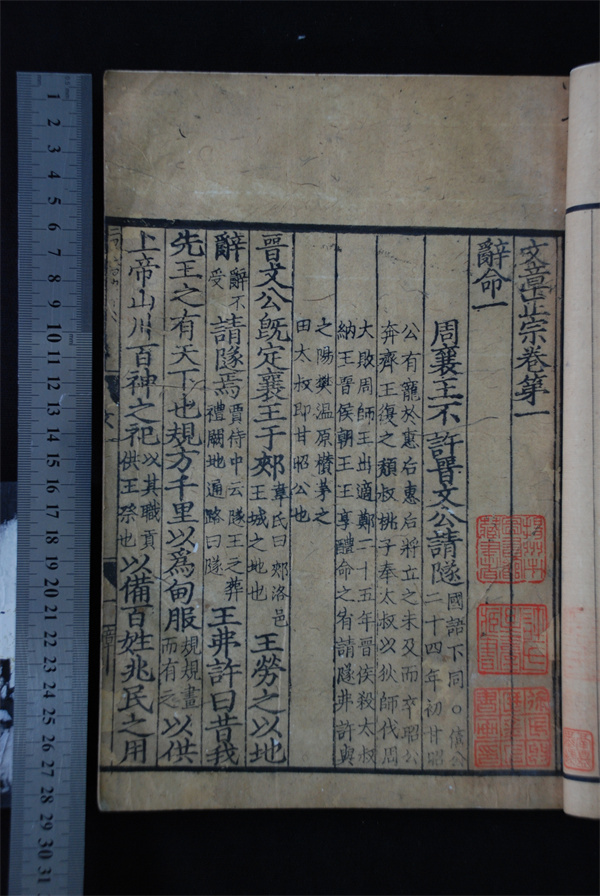 文章正宗卷第一
辭命一
周襄王不許晉文公請隧國語下同○僖公二十四年初甘昭
公有寵於惠后惠后將立之未及而卒昭公
奔齊王復之頹叔桃子奉太叔以狄師伐周
大敗周師王出適鄭二十五年晉侯殺太叔
納王晉侯朝王王享醴命之宥請隧弗許與
之陽樊温原欑茅之
田太叔即甘昭公也
晉文公旣定襄王于郟韋氏曰郟洛邑王城之地也王勞之以地
辭辭不受請隧焉賈侍中云隧王之葬禮闕地通路曰隧王弗許曰昔我
先王之有天下也規方千里以爲甸服規規畫而有之以供
上帝山川百神之祀以其職貢供王祭也以備百姓兆民之用
1 2 3 4 5 6 7 8 9 10 11 12 13 14 15 16 17 18 19 20 21 22 23 24 25 26 27 28 29 30 31